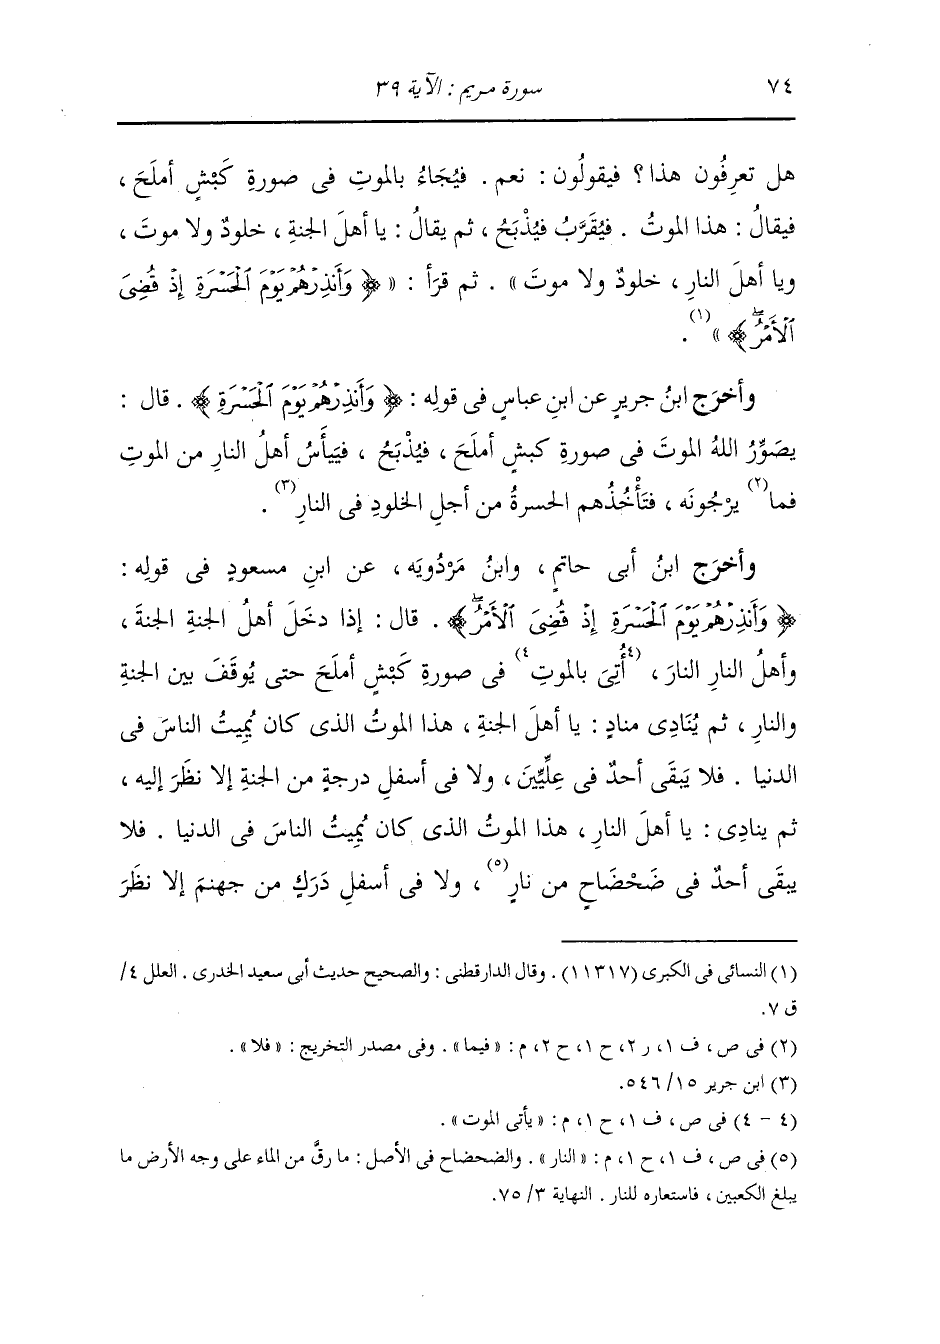 ٧٤ سورة مريم : الآية ٣٩
هل تعرِفُون هذا ؟ فيقولُون : نعم . فيُجَاءُ بالموتِ فى صورةِ كَبْشٍ أملَحَ ،
فيقالُ : هذا الموتُ . فيُقَرَّبُ فيُذْبَحُ ، ثم يقالُ : يا أهلَ الجنةِ ، خلودٌ ولا موتَ ،
ويا أهلَ النارِ ، خلودٌ ولا موتَ » . ثم قرَأ : « ﴿ وَأَنذِرْهُمْ يَوْمَ ٱلْحَسْرَةِ إِذْ قُضِىَ
ٱلْأَمْرُۖ ﴾ »(١) .
وأخرَج ابنُ جريرٍ عن ابنِ عباسٍ فى قولِه : ﴿ وَأَنذِرْهُمْ يَوْمَ ٱلْحَسْرَةِ ﴾ . قال :
يصَوِّرُ اللهُ الموتَ فى صورةِ كبشٍ أملَحَ ، فيُذْبَحُ ، فيَيأَسُ أهلُ النارِ من الموتِ
فما(٢) يرْجُونَه ، فتَأْخُذُهم الحسرةُ من أجلِ الخلودِ فى النارِ(٣) .
وأخرَج ابنُ أبى حاتمٍ ، وابنُ مَرْدُويَه ، عن ابنِ مسعودٍ فى قولِه :
﴿ وَأَنذِرْهُمْ يَوْمَ ٱلْحَسْرَةِ إِذْ قُضِىَ ٱلْأَمْرُۖ ﴾ . قال : إذا دخَلَ أهلُ الجنةِ الجنةَ ،
وأهلُ النارِ النارَ ، (٤أُتِىَ بالموتِ٤) فى صورةِ كَبْشٍ أملَحَ حتى يُوقَفَ بين الجنةِ
والنارِ ، ثم يُنَادِى منادٍ : يا أهلَ الجنةِ ، هذا الموتُ الذى كان يُمِيتُ الناسَ فى
الدنيا . فلا يَبقَى أحدٌ فى عِلِّيِّينَ ، ولا فى أسفلِ درجةٍ من الجنةِ إلا نظَرَ إليه ،
ثم ينادِى : يا أهلَ النارِ ، هذا الموتُ الذى كان يُمِيتُ الناسَ فى الدنيا . فلا
يبقَى أحدٌ فى ضَحْضَاحٍ من نارٍ(٥) ، ولا فى أسفلِ دَرَكٍ من جهنمَ إلا نظَرَ
(١) النسائى فى الكبرى (١١٣١٧) . وقال الدارقطنى : والصحيح حديث أبى سعيد الخدرى . العلل ٤/
ق ٧.
(٢) فى ص ، ف ١، ر ٢، ح ١، ح ٢، م : « فيما » . وفى مصدر التخريج : « فلا » .
(٣) ابن جرير ١٥/ ٥٤٦.
(٤ - ٤) فى ص ، ف ١، ح ١، م : « يأتى الموت » .
(٥) فى ص ، ف ١، ح ١، م : « النار » . والضحضاح فى الأصل : ما رقَّ من الماء على وجه الأرض ما
يبلغ الكعبين ، فاستعاره للنار . النهاية ٣/ ٧٥.